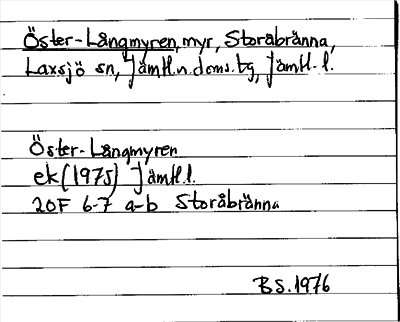 Öster-Långmyren, myr, Storåbränna,
Laxsjö sn, Jämtl.n.doms.tg, Jämtl. l.
Öster-Långmyren
ek (1975) Jämtl.l.
20F 6-7 a-b Storåbränna
BS.1976